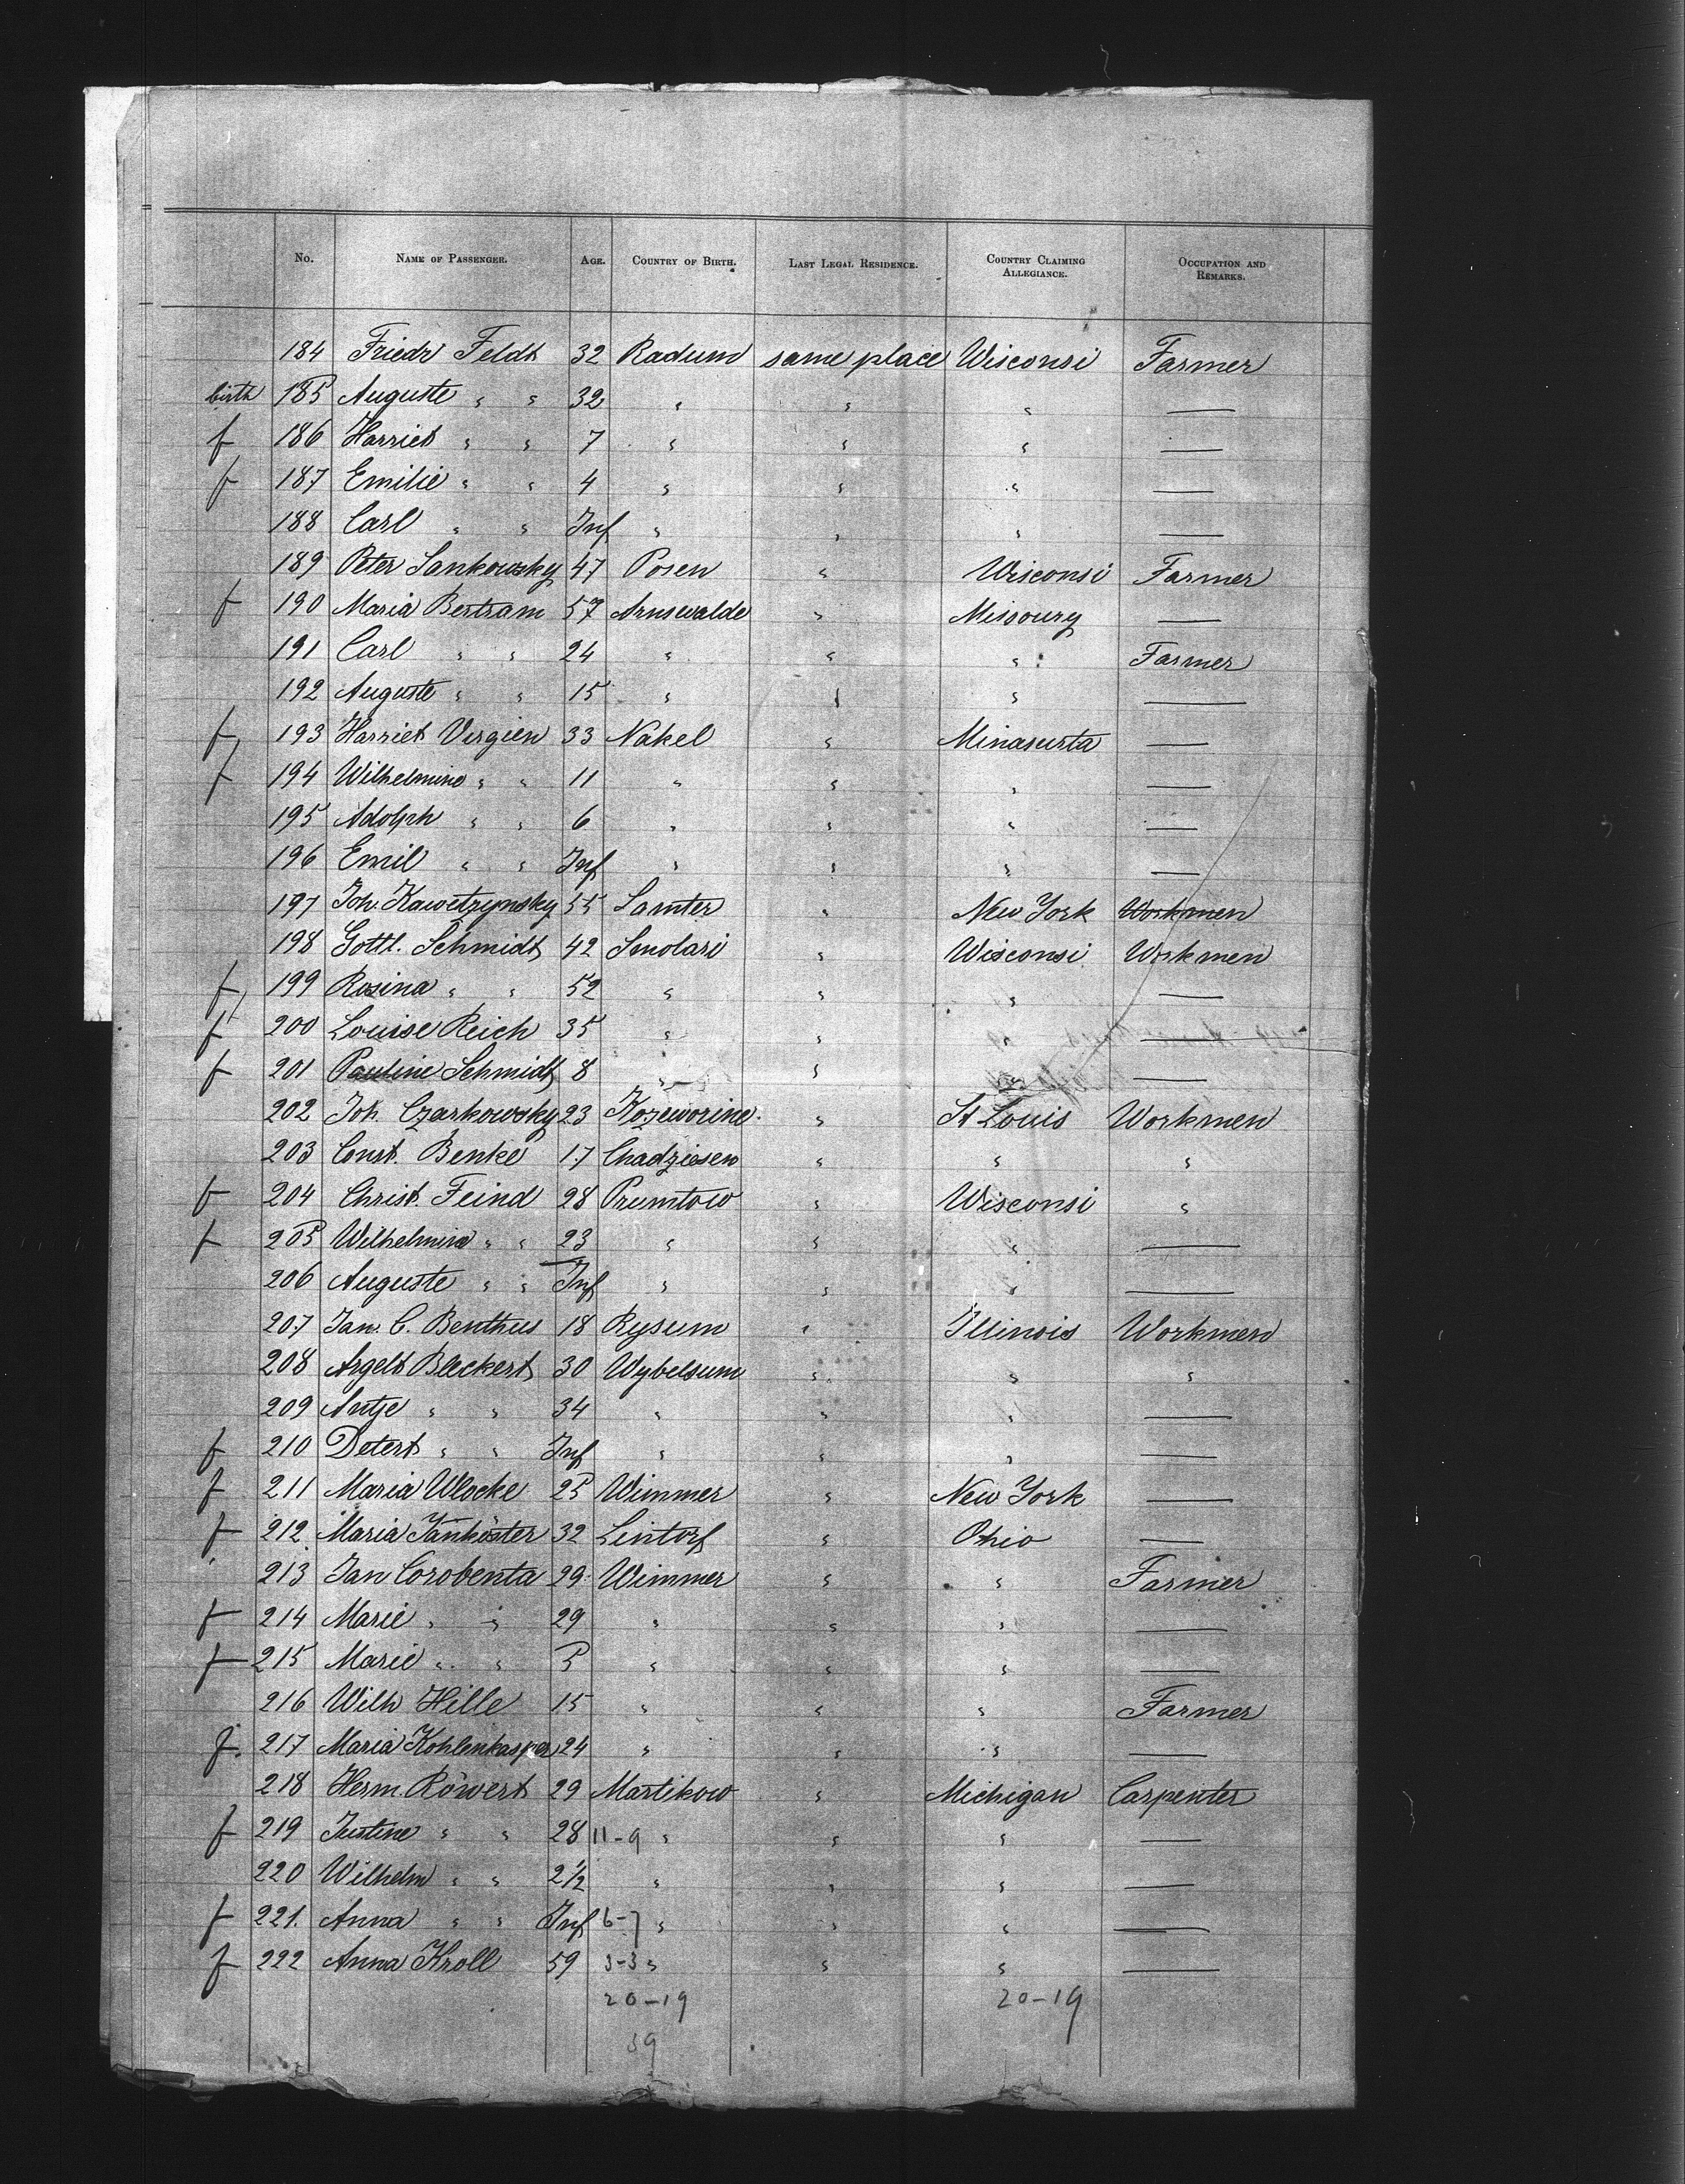 No. NAME OF PASSENGER. AGE. COUNTRY OF BIRTH. LAST LEGAL RESIDENCE. COUNTRY CLAIMING ALLEGIANCE. OCCUPATION AND REMARKS.
184 Friedr Feldt 32 Radum same place Wisconsi Farmer
birth 185 Auguste " " 32 " " " —
f 186 Harriet " " 7 " " " —
f 187 Emilie " " 4 " " " —
188 Carl " " Inf " " " —
189 Peter Sankowsky 47 Posen " Wisconsi Farmer
f 190 Maria Bertram 57 Arnswalde " Missoury —
191 Carl " " 24 " " " Farmer
192 Auguste " " 15 " " " —
f 193 Harriet Virgien 33 Nakel " Minasurta —
f 194 Wilhelmine " " 11 " " " —
195 Adolph " " 6 " " " —
196 Emil " " Inf " " " —
197 Joh. Kawetzynsky 55 Samter " New York Workmen
198 Gottl. Schmidt 42 Smolari " Wisconsi Workmen
f 199 Rosina " " 52 " " " —
f 200 Louise Reich 35 " " —
f 201 Pauline Schmidt 8 " " —
202 Joh. Czarkowsky 23 Kozeworine " St Louis Workmen
203 Const. Benke 17 Chadziesen " " "
f 204 Christ. Feind 28 Prumtow " Wisconsi "
f 205 Wilhelmine " " 23 " " " —
206 Auguste " " Inf " " " —
207 Jan. C. Benthus 18 Rysum " Illinois Workmen
208 Argelt Bleckert 30 Wybelsum " " "
209 Antje " " 34 " " " —
f 210 Detert " " Inf " " " —
f 211 Maria Wlocke 25 Wimmer " New York —
f 212 Maria Tanköster 32 Lintorf " Ohio —
213 Jan Corobenta 29 Wimmer " " Farmer
f 214 Marie " " 29 " " " —
f 215 Marie " " 5 " " " —
216 Wilh Hille 15 " " " Farmer
f. 217 Maria Kohlenkasper 24 " " " —
218 Herm. Röwert 29 Martikow " Michigan Carpenter
f 219 Justine " " 28 11-9 " " " —
220 Wilhelm " " 2½ " " " —
f 221. Anna " " Inf 6-7 " " " —
f 222 Anna Kroll 59 3-3 " " " —
20-19 20-19
39